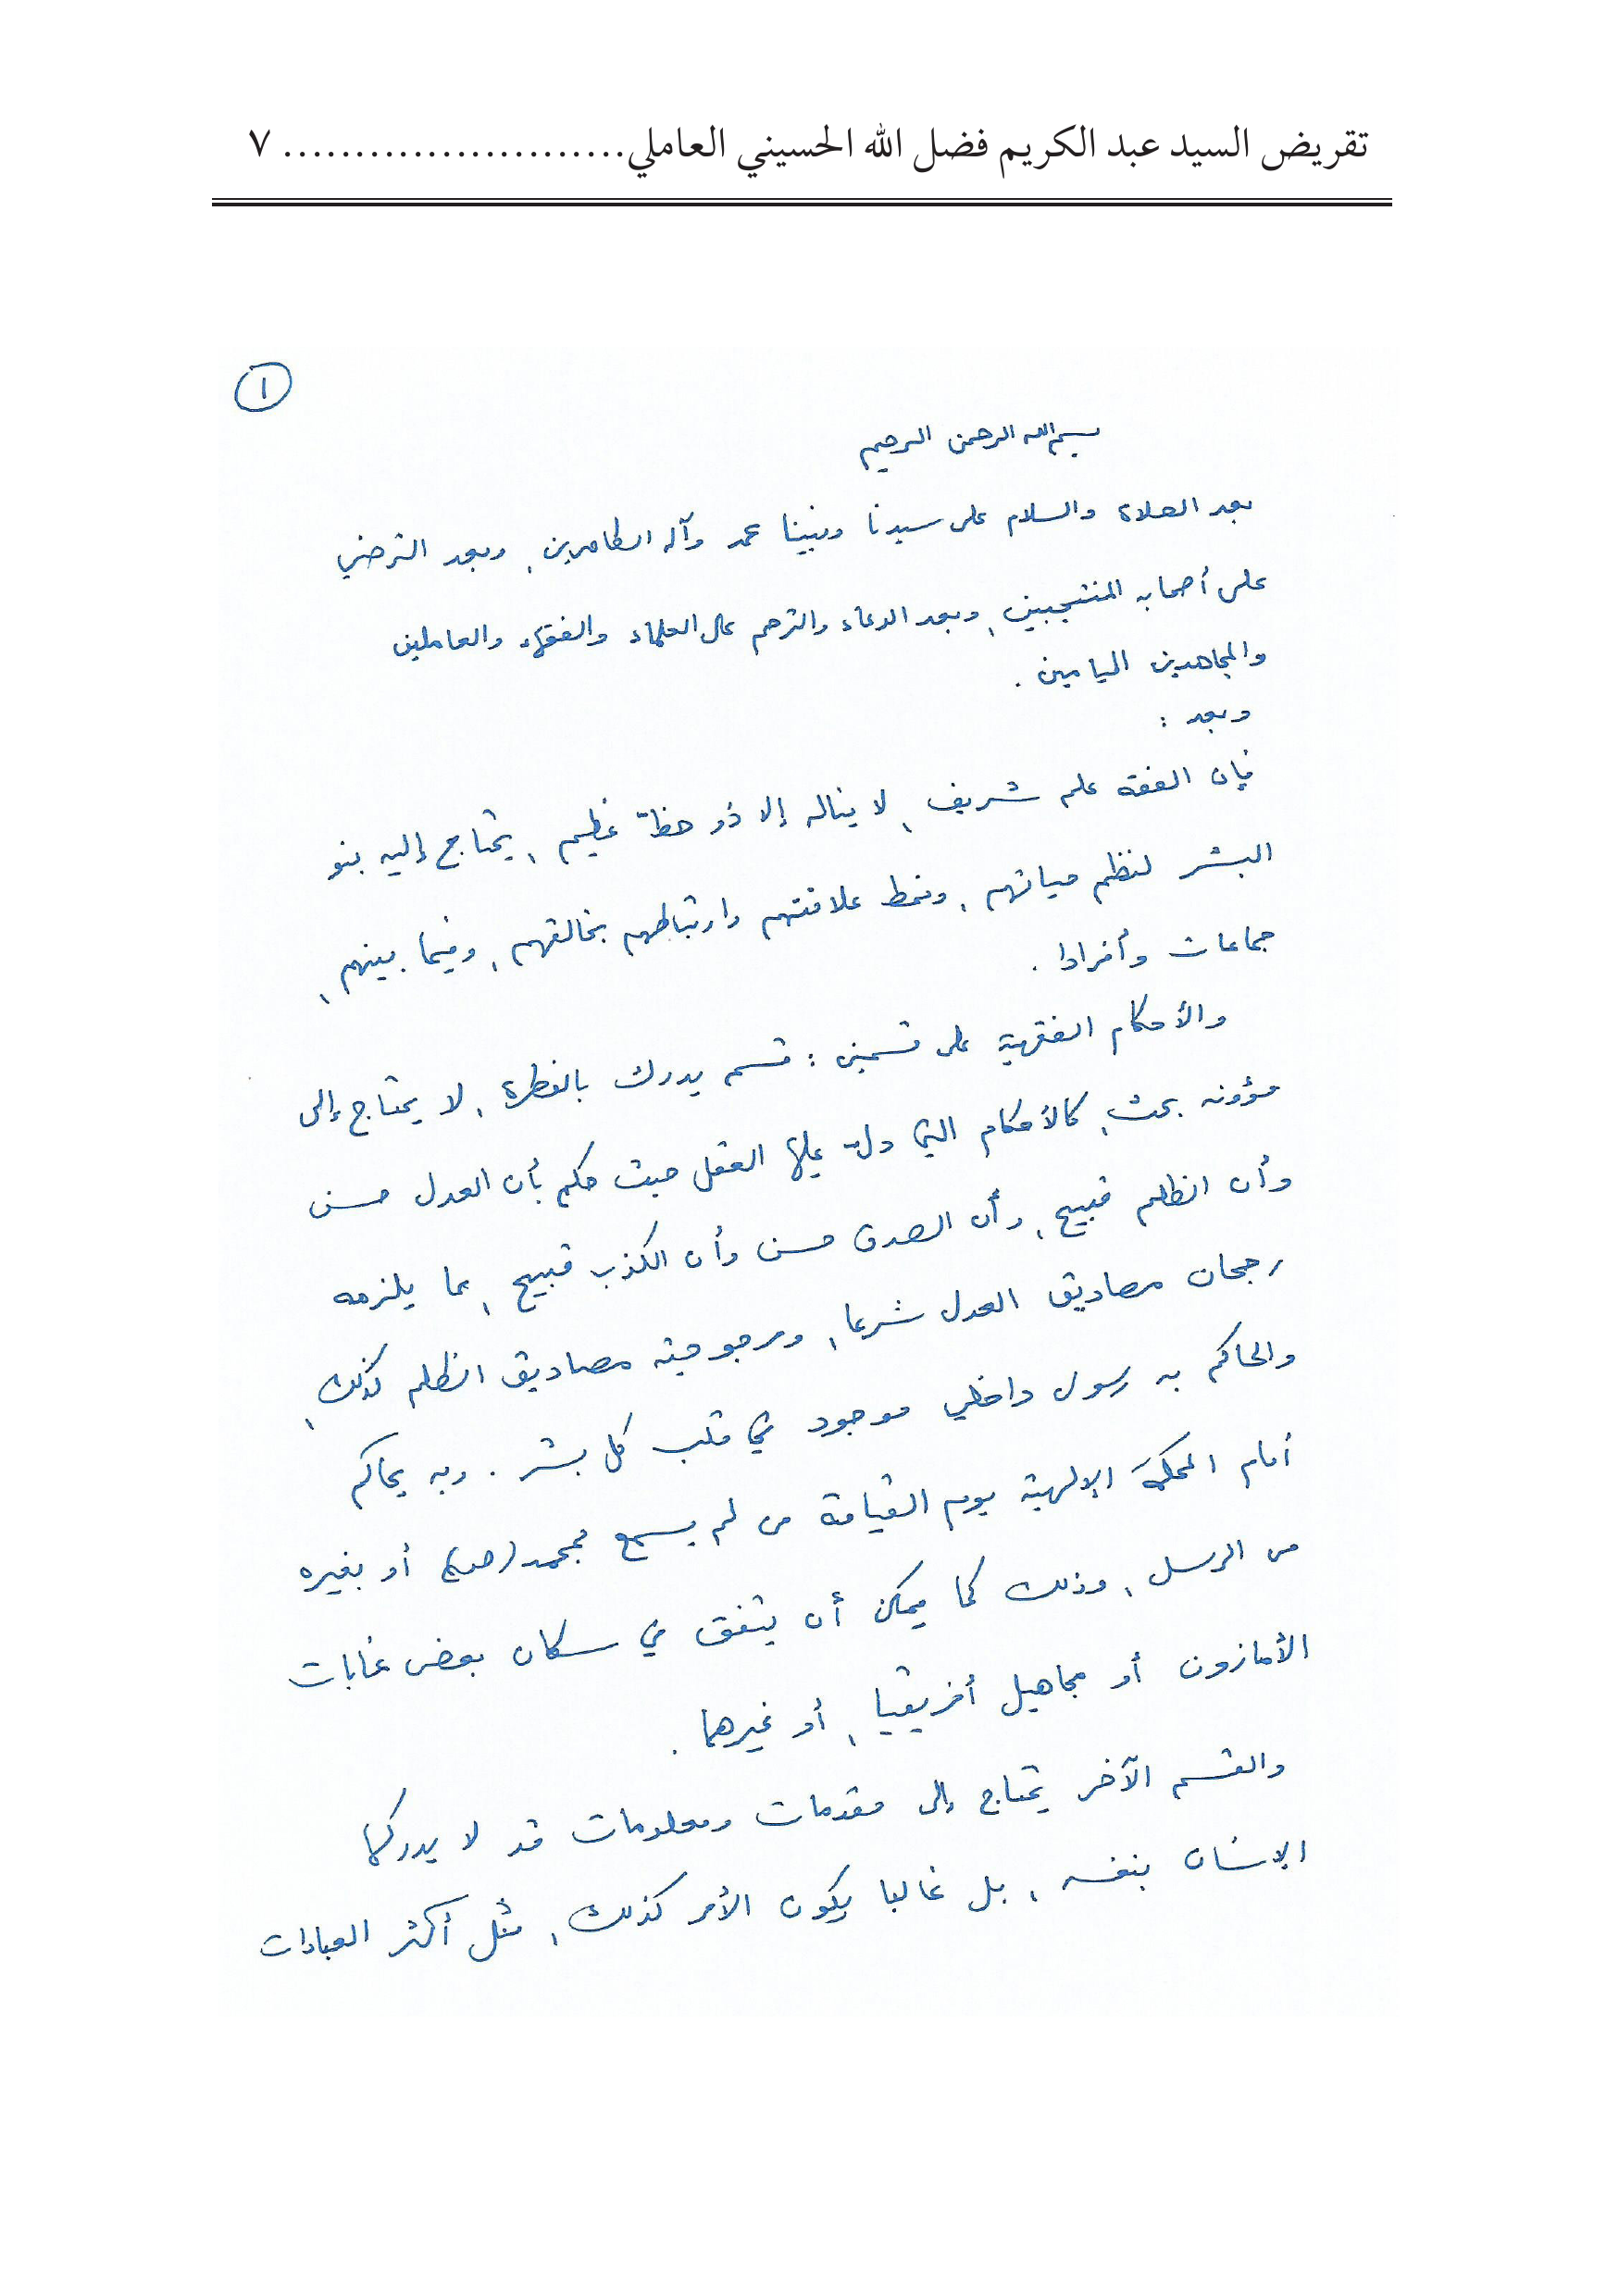 تقريض السيد عبد الكريم فضل الله الحسيني العاملي........................ ٧
١
بسم الله الرحمن الرحيم
بعد الصلاة والسلام على سيدنا ونبينا محمد وآله الطاهرين، وبعد الترضي
على أصحابه المنتجبين، وبعد الدعاء والترحم على العلماء والفقهاء والعاملين
والمجاهدين الميامين .
وبعد :
فإن الفقه علم شريف، لا يناله إلا ذو حظّ عظيم، يحتاج إليه بنو
البشر لنظم حياتهم، ونمط علاقتهم وارتباطهم بخالقهم، وفيما بينهم،
جماعات وأفرادا .
والأحكام الفقهية على قسمين : قسم يدرك بالفطرة، لا يحتاج إلى
مؤونه بحث، كالأحكام التي دلّ عليها العقل حيث حكم بأن العدل حسن
وأن الظلم قبيح، وأن الصدق حسن وأن الكذب قبيح، مما يلزمه
رجحان مصاديق العدل شرعا، ومرجوحية مصاديق الظلم كذلك،
والحاكم به رسول داخلي موجود في قلب كل بشر . وبه يحاكم
أمام المحكمة الإلهية يوم القيامة من لم يسمع بمحمد (ص) أو بغيره
من الرسل، وذلك كما يمكن أن يتفق في سكان بعض غابات
الأمازون أو مجاهيل أفريقيا، أو غيرهما .
والقسم الآخر يحتاج إلى مقدمات ومعلومات قد لا يدركها
الإنسان بنفسه، بل غالبا يكون الأمر كذلك، مثل أكثر العبادات